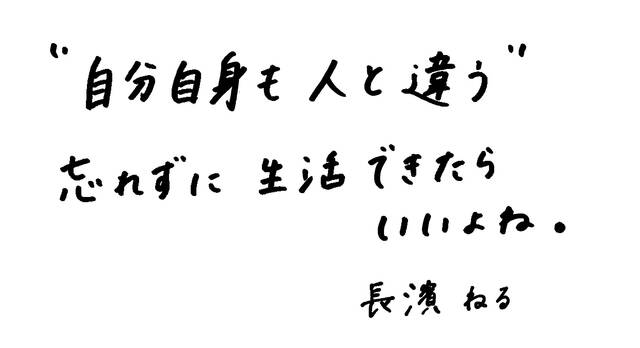 "自分自身も人と違う"
忘れずに 生活できたら
いいよね。
長濱 ねる